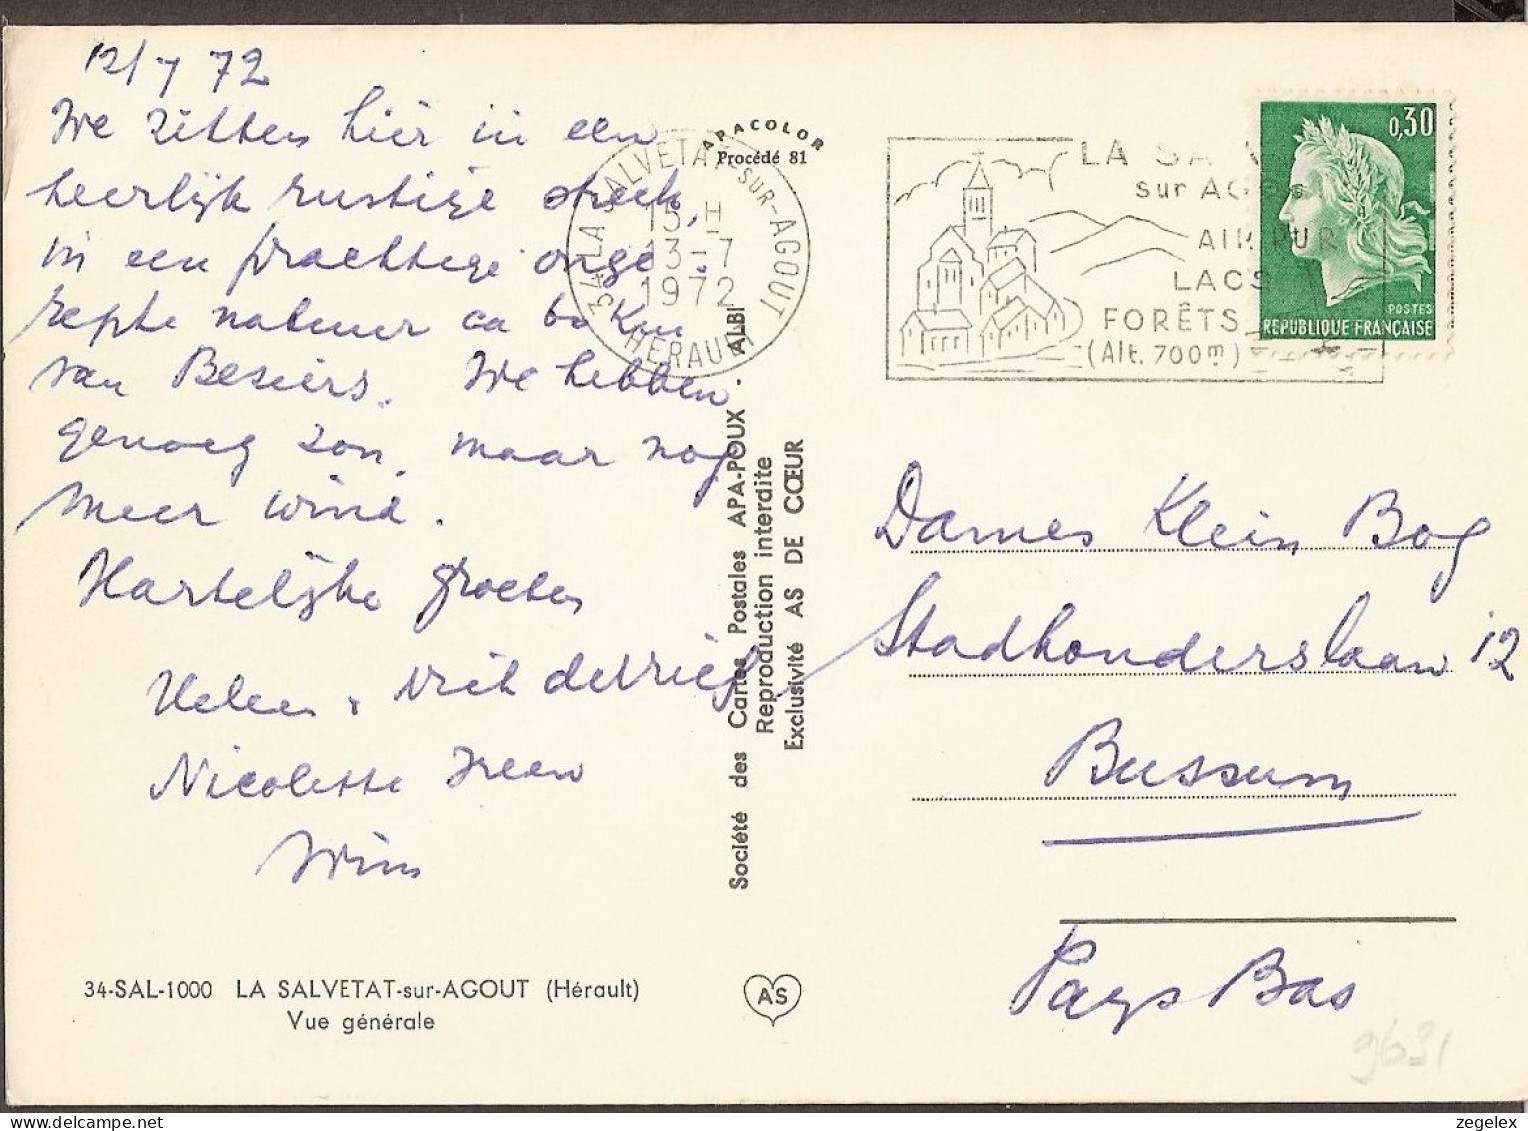 12/7 72
We zitten hier in een
heerlijk rustige streek,
in een prachtige onge
repte natuur ca 60 km
van Besiers. We hebben
genoeg zon, maar nog
meer wind.
Hartelijke groeten
Heleen, de Vries
Nicolette Ireen
Wim
34-SAL-1000 LA SALVETAT-sur-AGOUT (Hérault)
Vue générale
APACOLOR
Procédé 81
34 LA SALVETAT-SUR-AGOUT
15 H
13-7
1972
HERAULT
Société des Cartes Postales APA-POUX . ALBI
Reproduction interdite
Exclusivité AS DE CŒUR
AS
LA SA
sur AG
AIR PUR
LACS
FORÊTS
(Alt. 700m)
0,30
POSTES
REPUBLIQUE FRANÇAISE
Dames Klein Bog
Stadhouderslaan 12
Bussum
Pays Bas
9631
zegelex